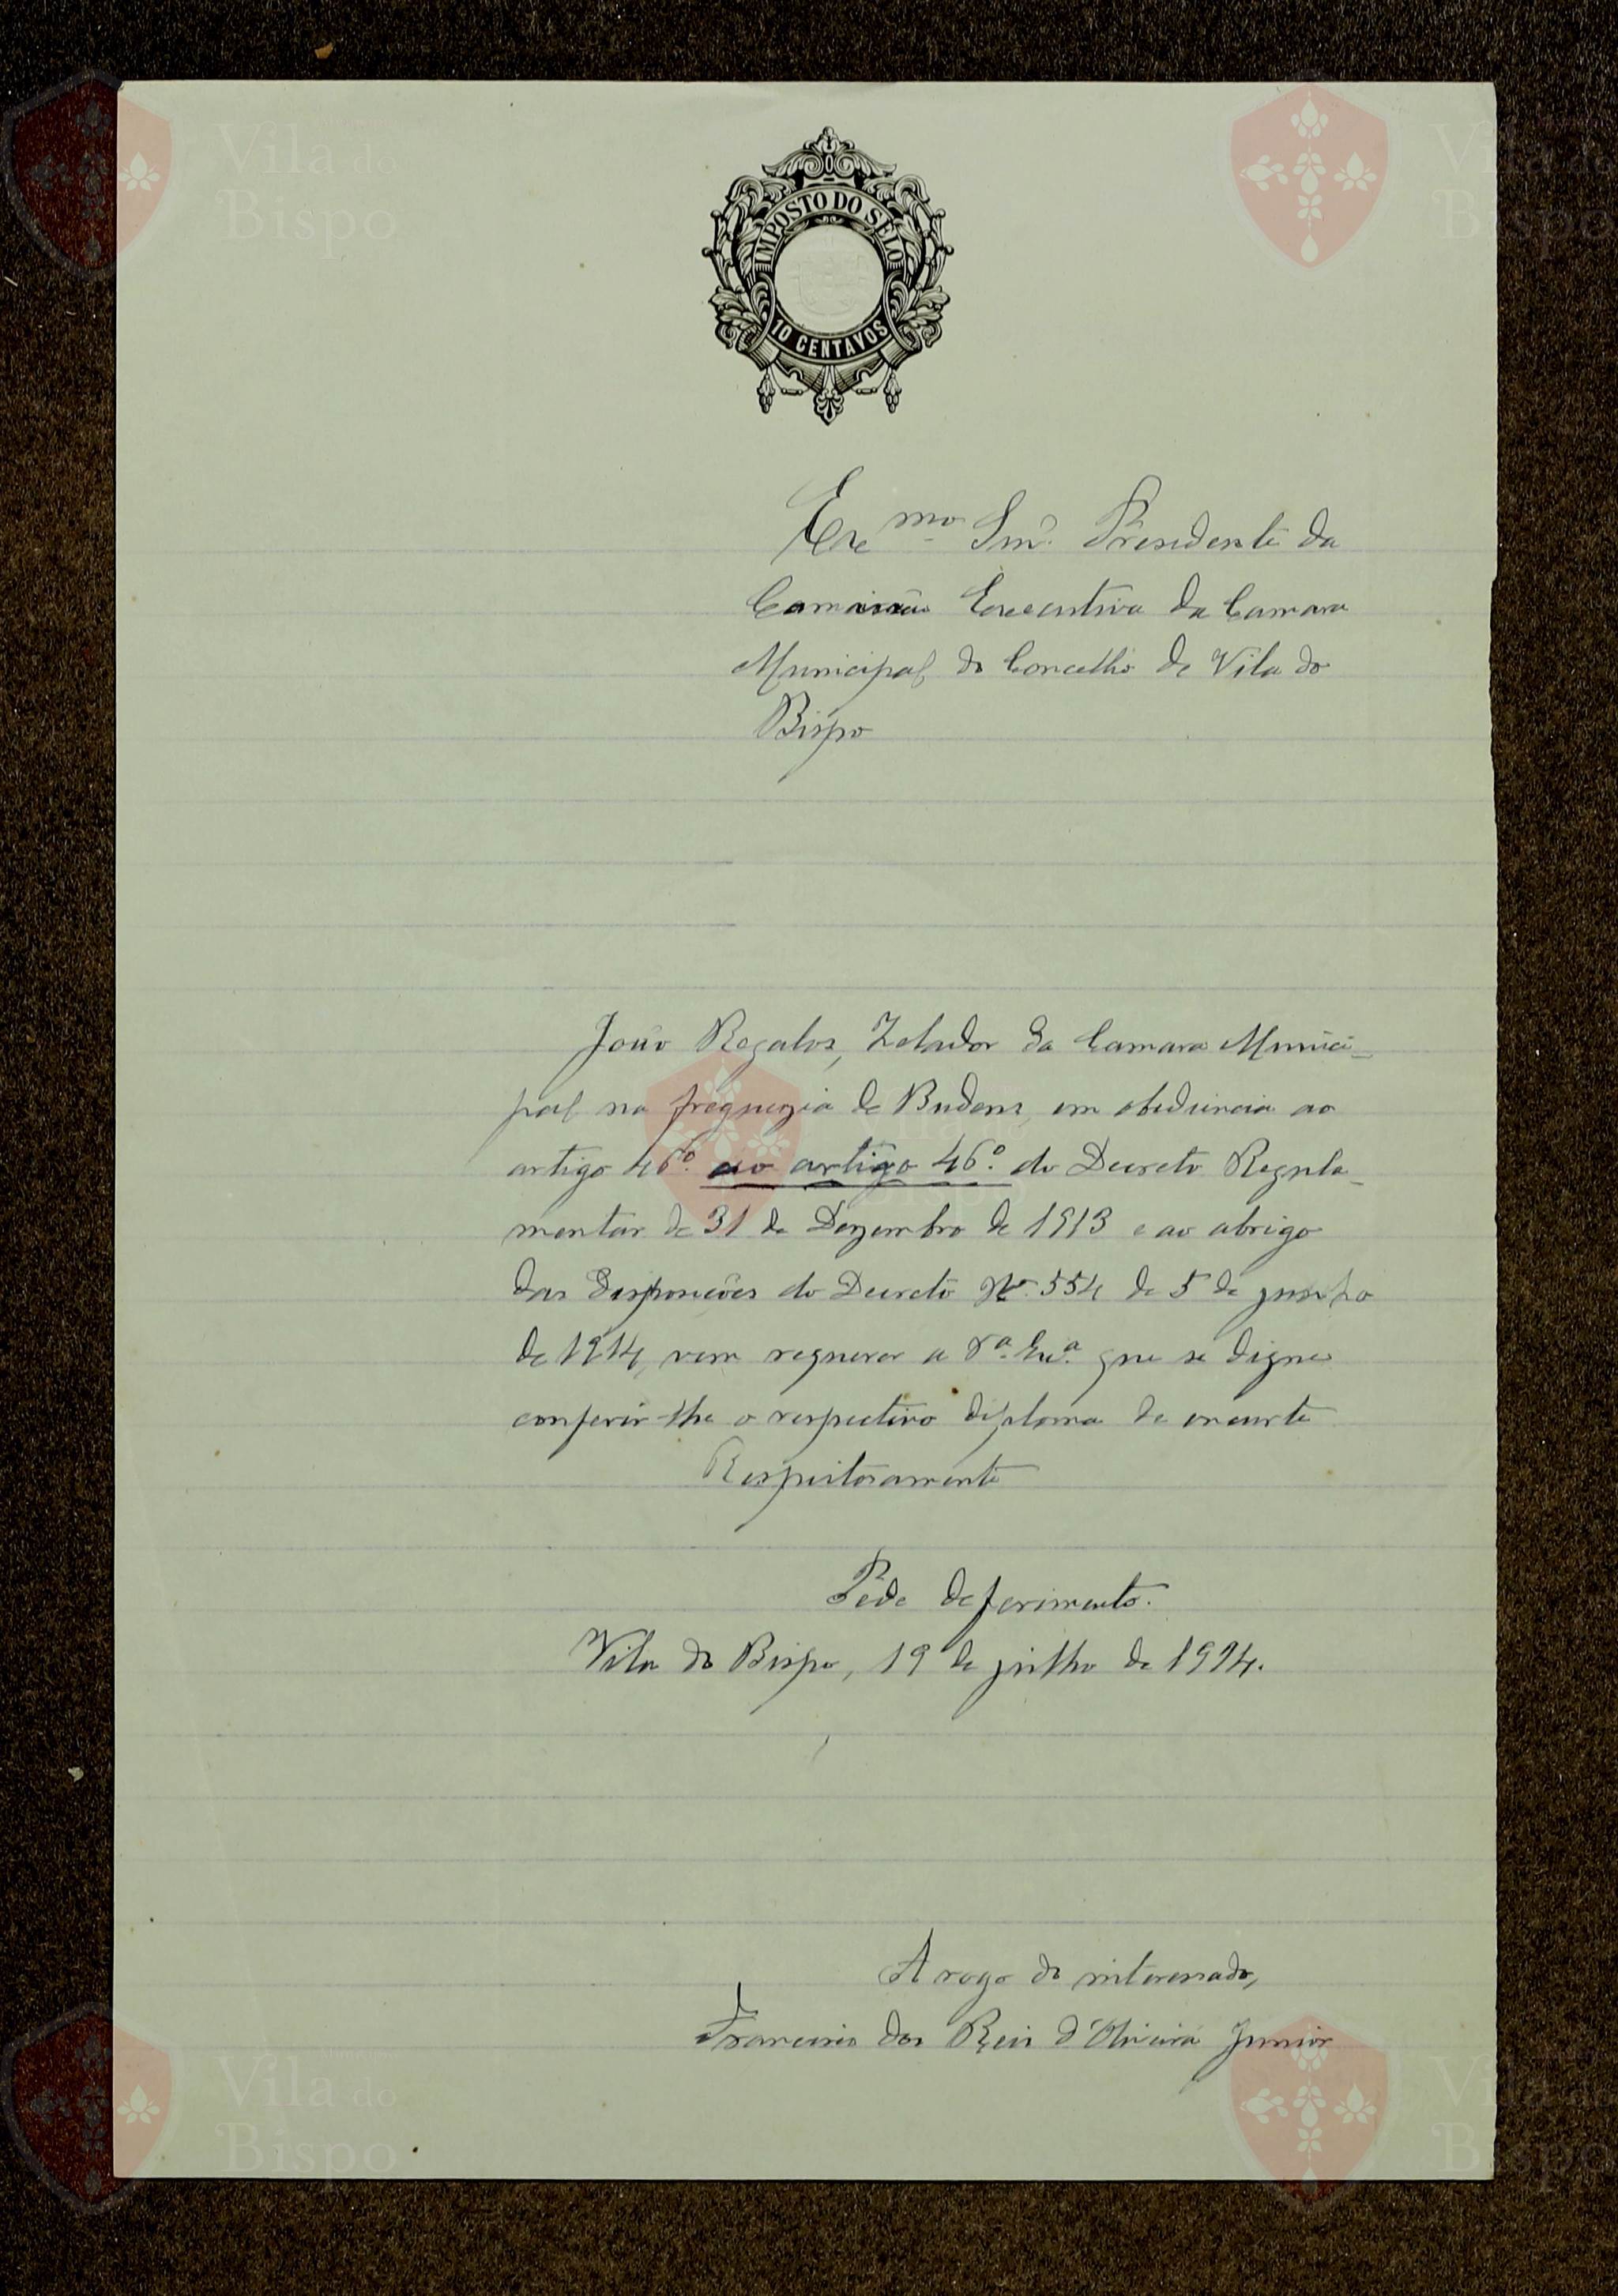 Vila do
Bispo
IMPOSTO DO SÊLO
10 CENTAVOS
Exe mo Snr. Presidente da
Comissão Executiva da Camara
Municipal do Concelho de Vila do
Bispo
João Regalos, Zelador da Camara Munici-
pal na freguezia de Budens, em obediencia ao
artigo 46º. ao artigo 46º. do Decreto Regula-
mentar de 31 de Dezembro de 1913 e ao abrigo
das disposições do Decreto Nº. 554 de 5 de junho
de 1914, vem requerer a Vª. Exª. que se digne
conferir-lhe o respectivo diploma de encarte
Respeitosamente
Pede deferimento.
Vila do Bispo, 19 de julho de 1924.
A rogo do interessado,
Francisco dos Reis d'Oliveira Junior
Vila do
Bispo